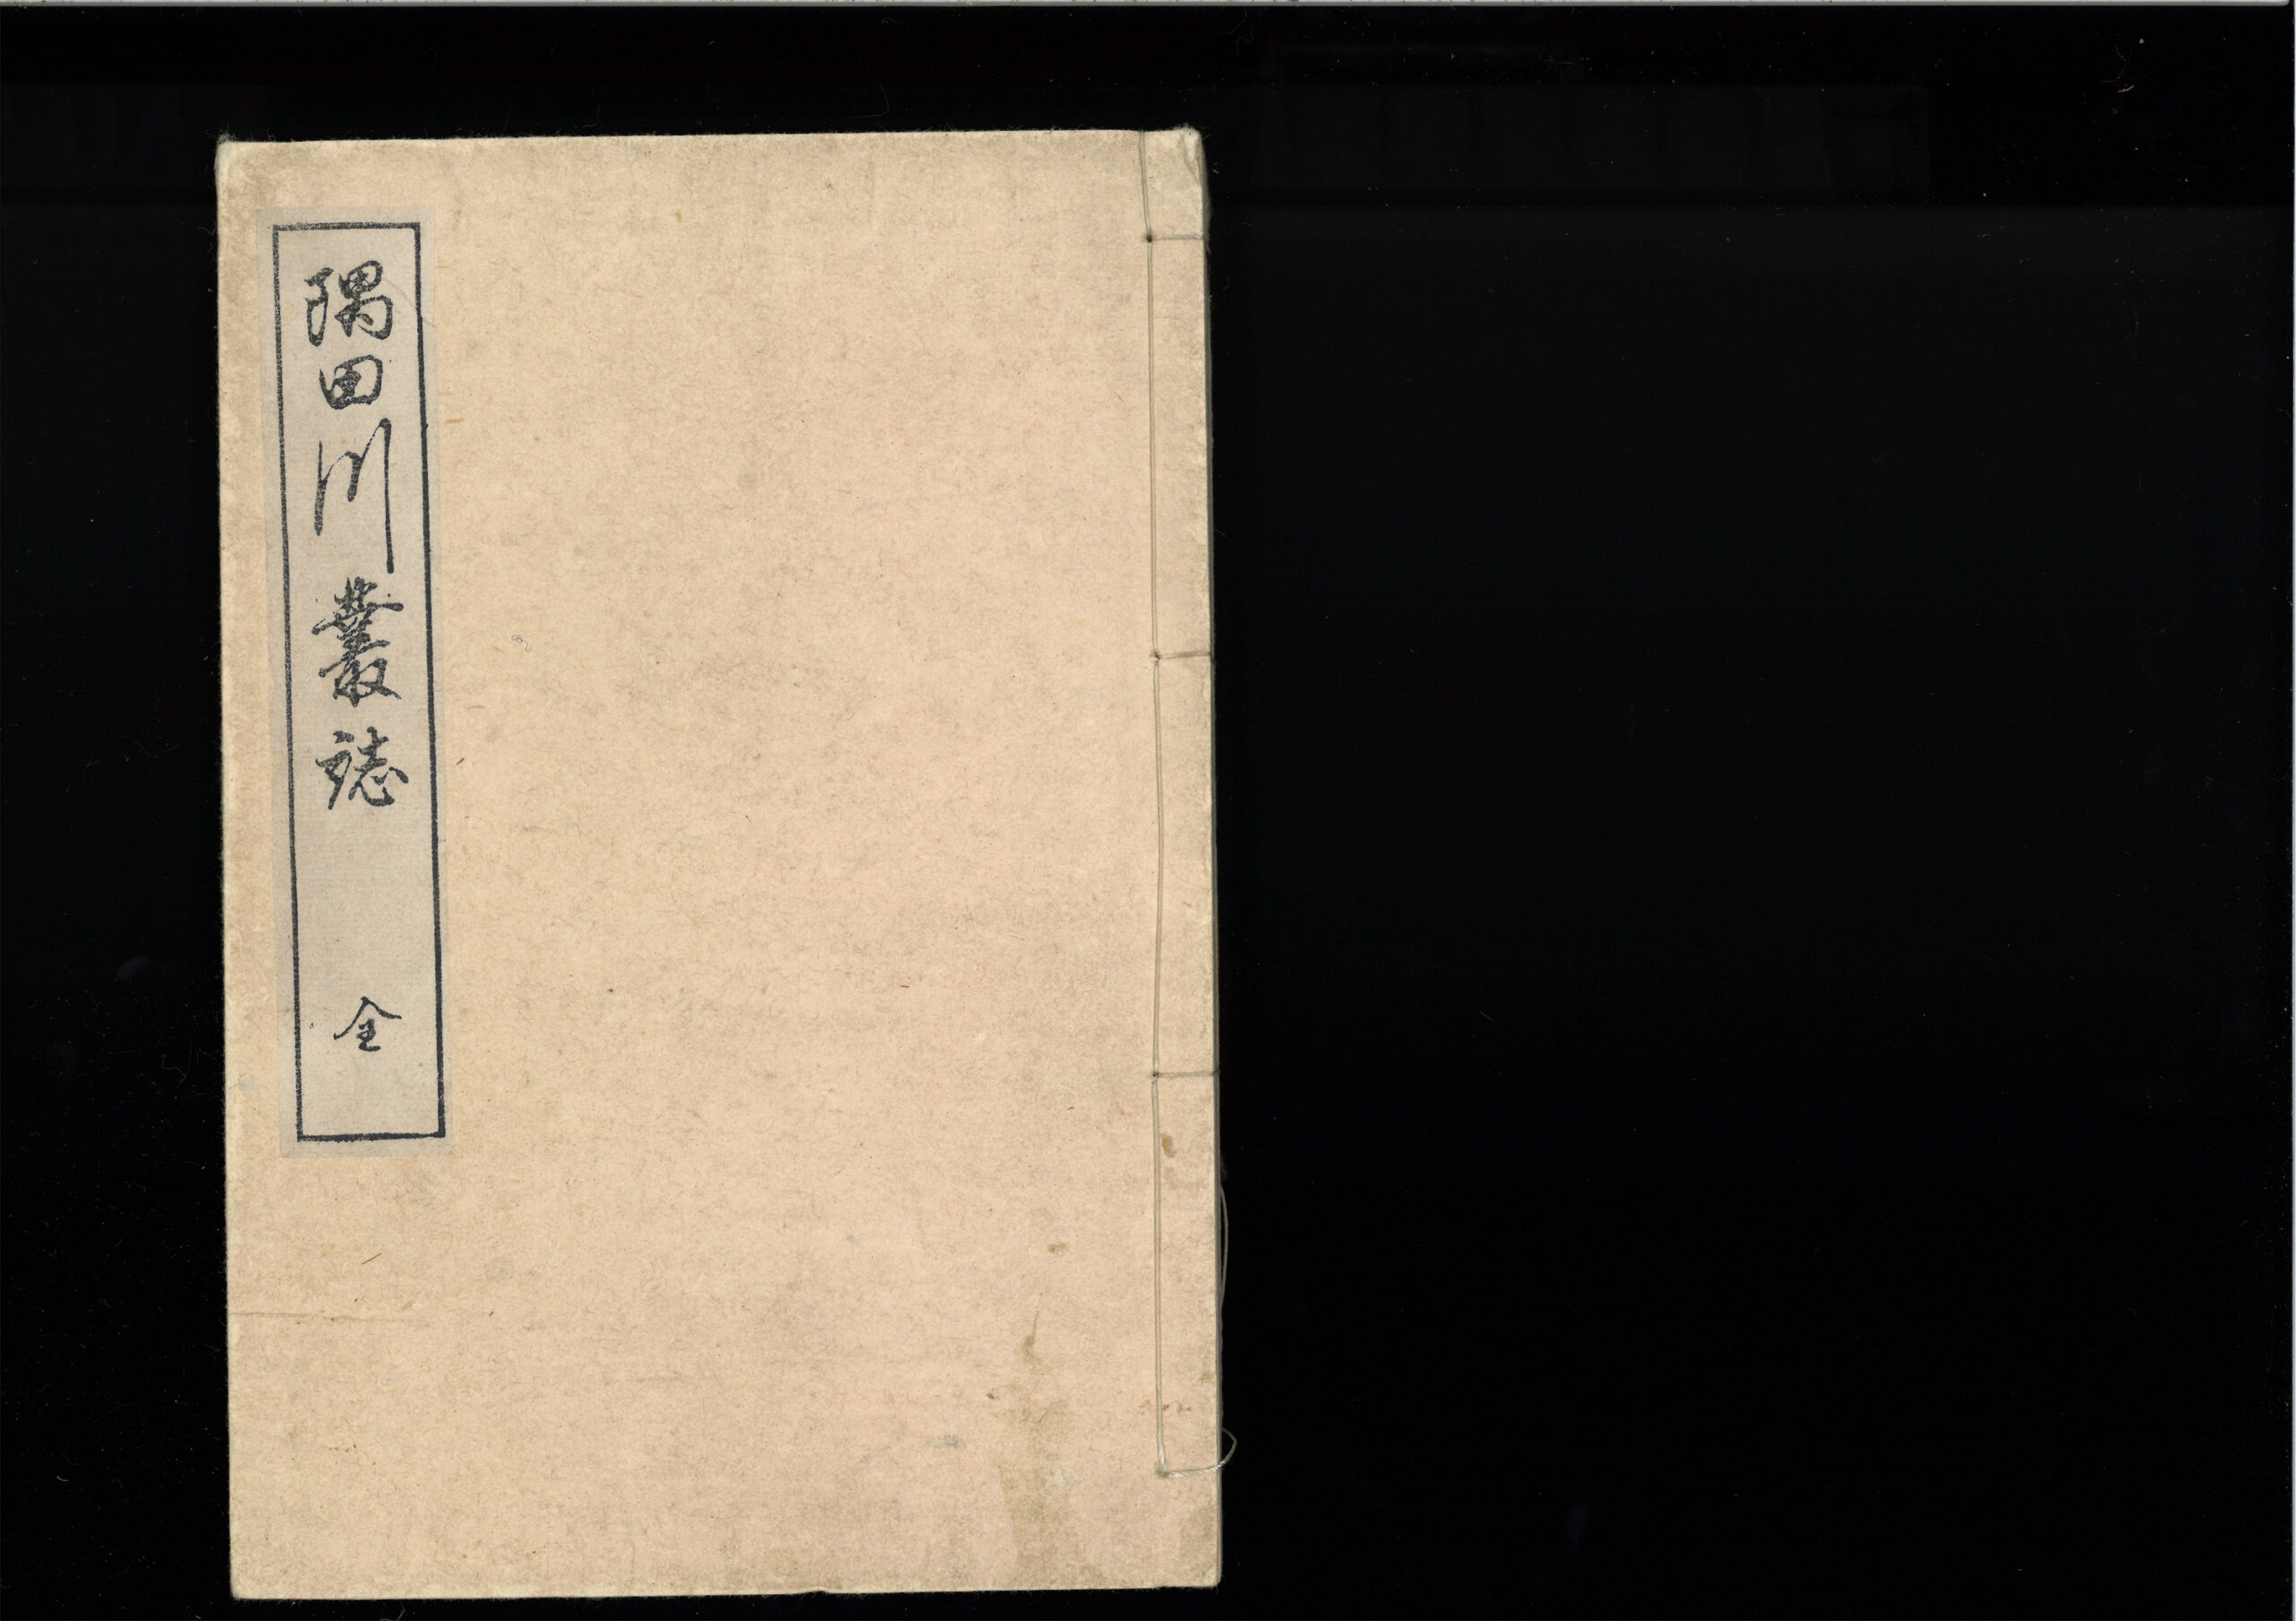 隅田川叢誌 全